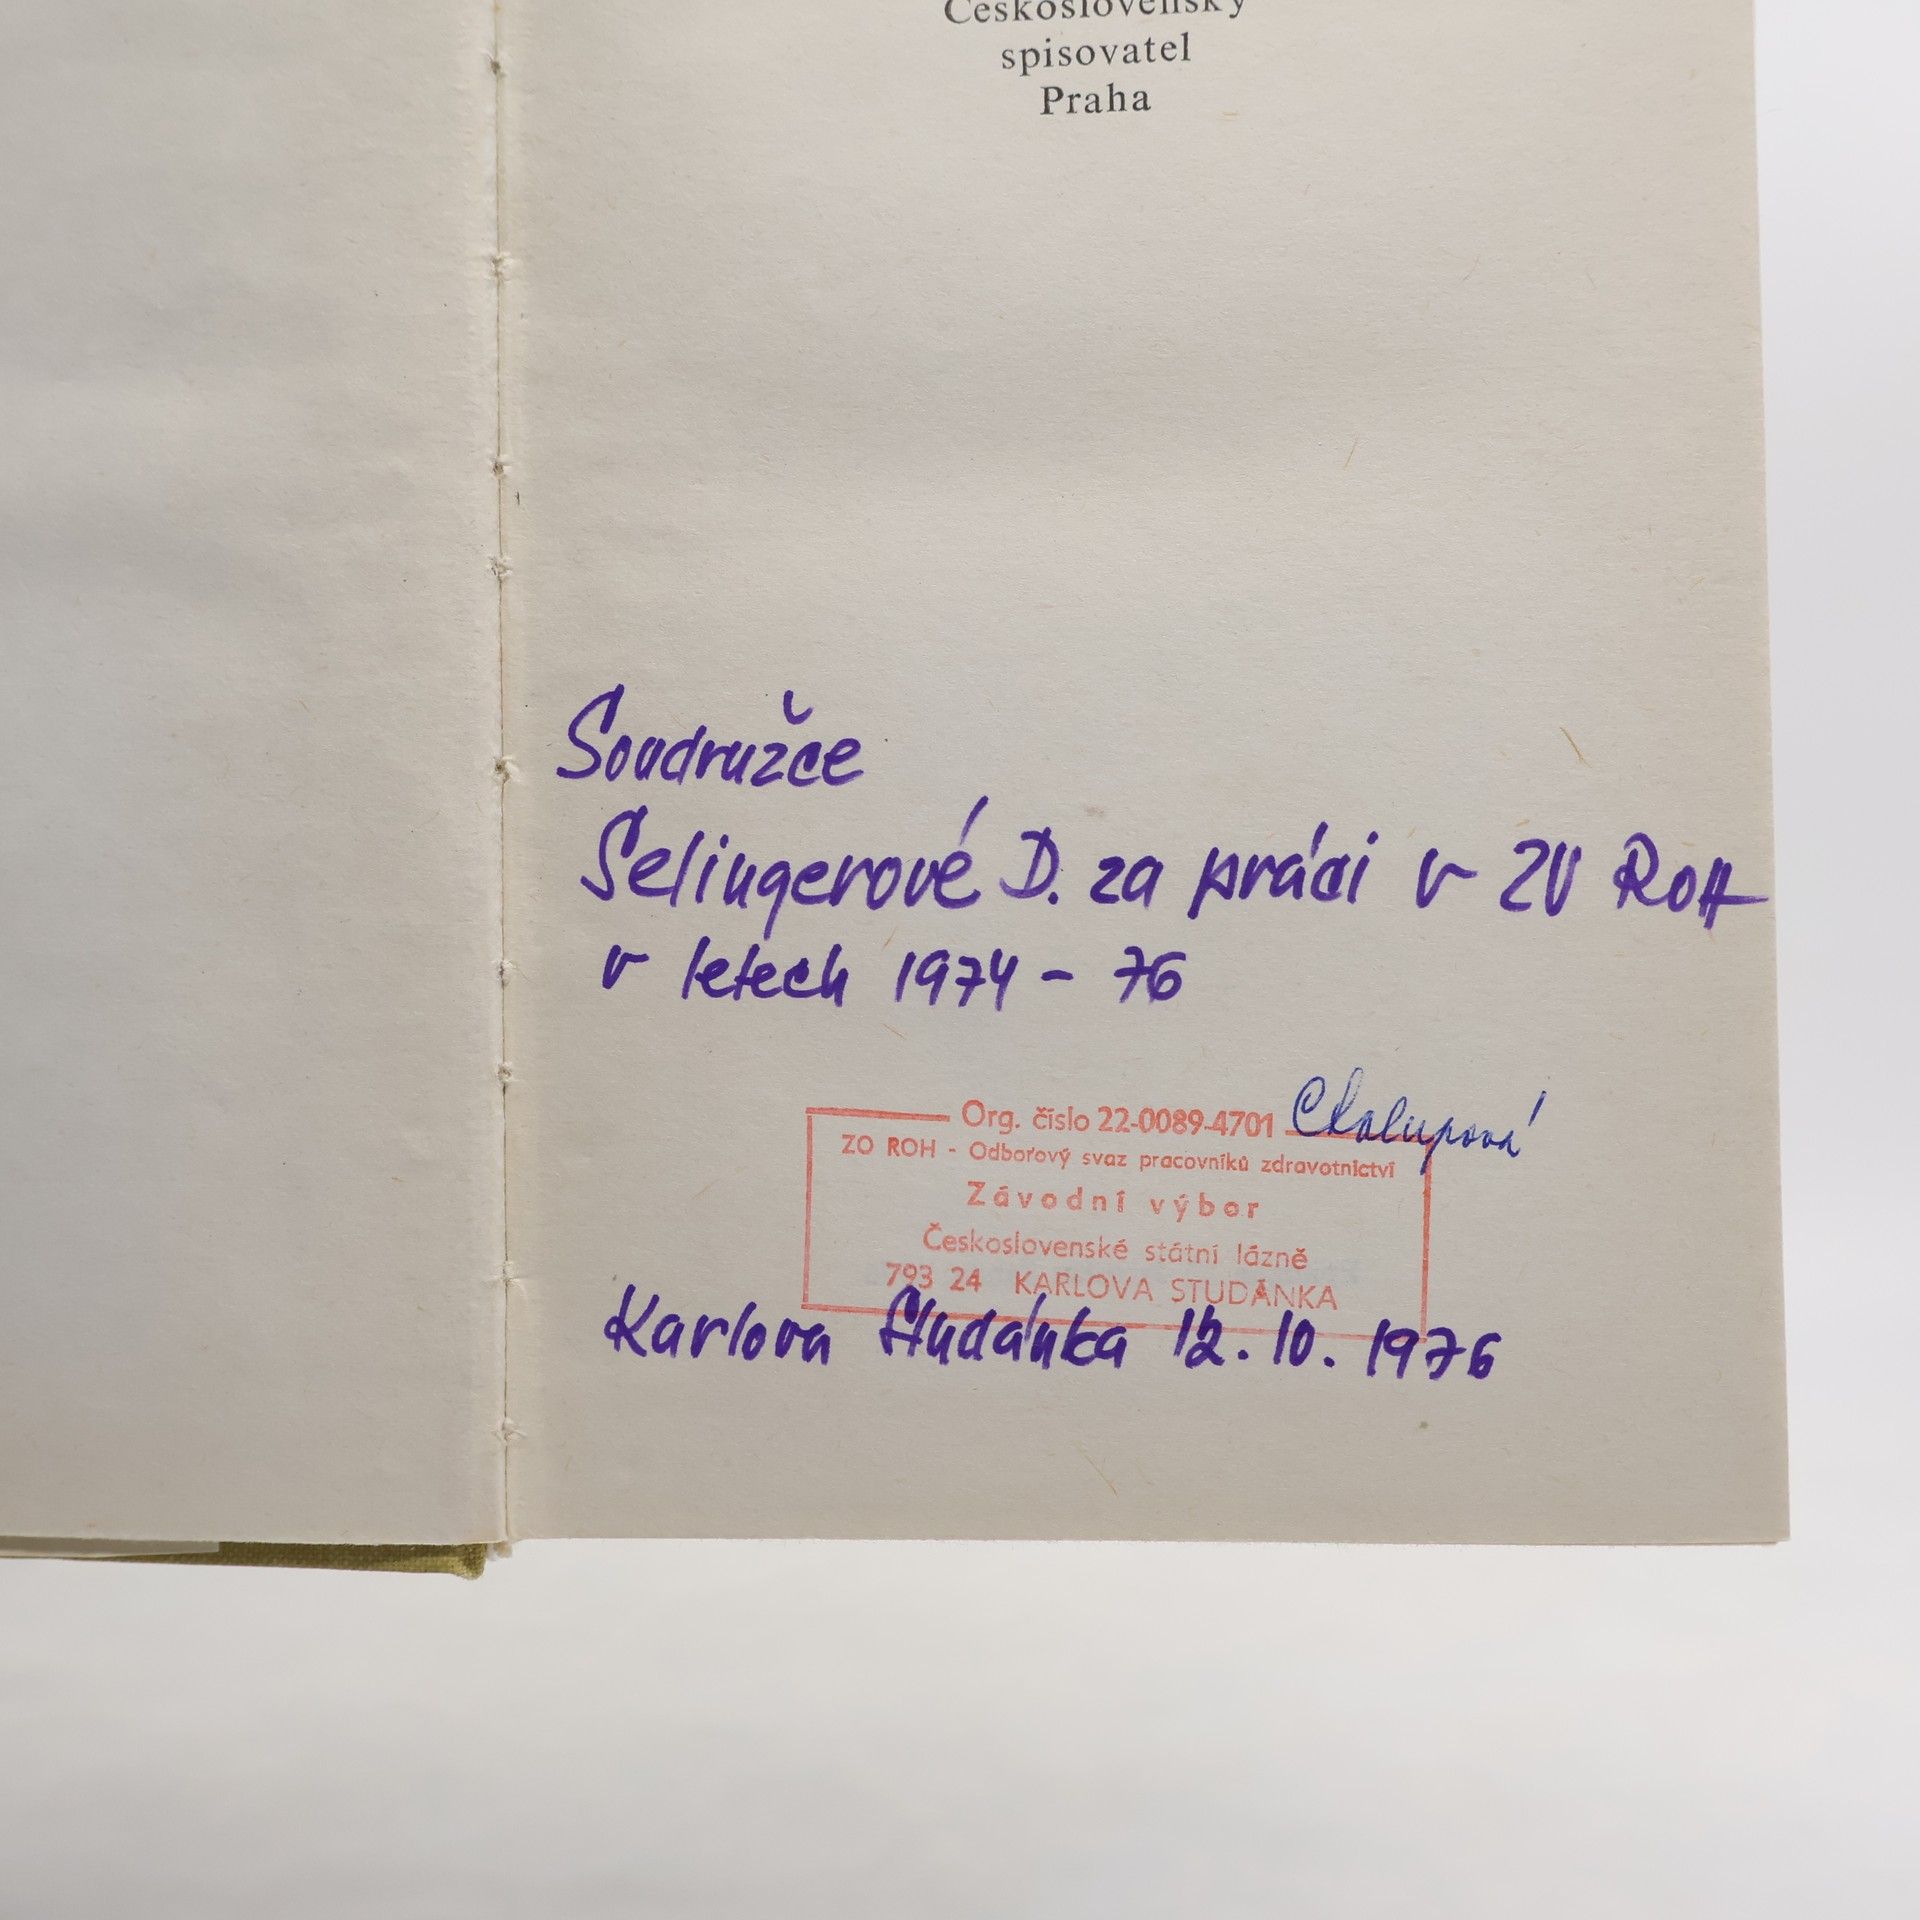 Československý
spisovatel
Praha
Soudružce
Selingerové D. za práci v ZV ROH
v letech 1974 - 76
Org. číslo 22-0089-4701 Chalupová
ZO ROH - Odborový svaz pracovníků zdravotnictví
Závodní výbor
Československé státní lázně
793 24 KARLOVA STUDÁNKA
Karlova Studánka 12. 10. 1976